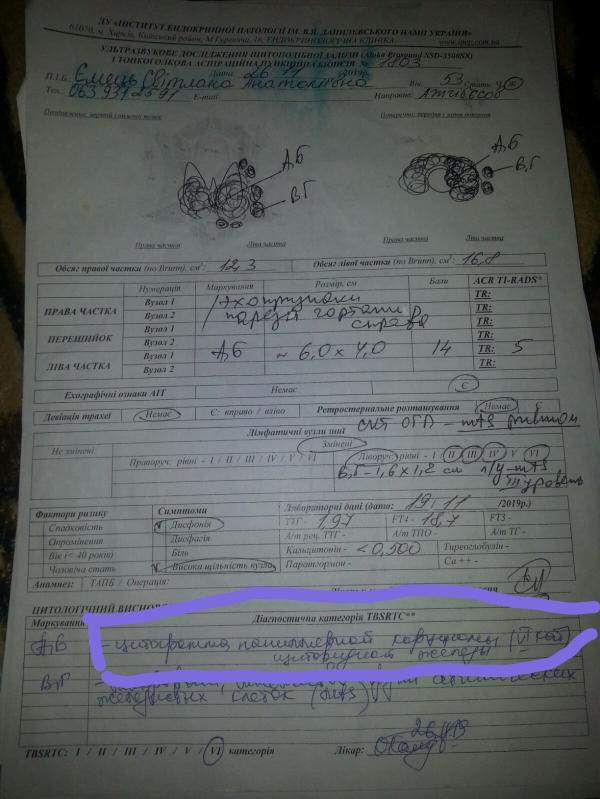 ДУ «ІНСТИТУТ ЕНДОКРИННОЇ ПАТОЛОГІЇ ІМ. В.Я. ДАНИЛЕВСЬКОГО НАМН УКРАЇНИ»
61070, м. Харків, Київський район, ЕНДОКРИНОЛОГІЧНА КЛІНІКА
УЛЬТРАЗВУКОВЕ ДОСЛІДЖЕННЯ ЩИТОПОДІБНОЇ ЗАЛОЗИ (Aloka Prosound SSD-3500SX)
І ТОНКОГОЛКОВА АСПІРАЦІЙНА ПУНКЦІЙНА БІОПСІЯ № 1803
Дата: 26 11 2019р.
П.І.Б. Ємець Світлана Анатоліївна Вік: 53 Стать: Ч Ж
Тел. E-mail Направив:
А,Б
В,Г
А,Б
В,Г
Права частка Ліва частка Права частка Ліва частка
Обсяг правої частки (по Brunn), см³: 12,3 Обсяг лівої частки (по Brunn), см³: 16,8
Нумерація Маркування Розмір, см Бали ACR TI-RADS*
ПРАВА ЧАСТКА Вузол 1 TR:
Вузол 2 парез гортани справа TR:
ПЕРЕШИЙОК Вузол 1 TR:
Вузол 2 А,Б ~ 6,0 х 4,0 14 TR: 5
ЛІВА ЧАСТКА Вузол 1 TR:
Вузол 2
Ехографічні ознаки АІТ Немає Є
Девіація трахеї Немає Є: вправо / вліво Ретростернальне розташування Немає Є
Лімфатичні вузли шиї
Не змінені Змінені
Праворуч: рівні - I / II / III / IV / V / VI Ліворуч: рівні - I / II III IV V VI
В,Г - 1,6 х 1,2 см л/у - mts
III уровень
Фактори ризику Симптоми Лабораторні дані (дата: 19 11 /2019р.)
Спадковість V Дисфонія ТТГ - 1,97 FT4 - 18,7 FT3 -
Опромінення Дисфагія А/т рец. ТТГ - А/т ТПО - А/т ТГ -
Вік (< 40 років) Біль Кальцитонін - < 0,500 Тиреоглобулін -
Чоловіча стать V Висока щільність вузла Паратгормон - Ca ++ -
Анамнез: ТАПБ / Операція:
ЦИТОЛОГІЧНИЙ
Маркування Діагностична категорія TBSRTC**
А,Б - цитограмма папиллярной карциномы (VI кат)
щитовидной железы
В,Г
железистых клеток (mts)
26.11.19
TBSRTC: I / II / III / IV / V / VI категорія Лікар: